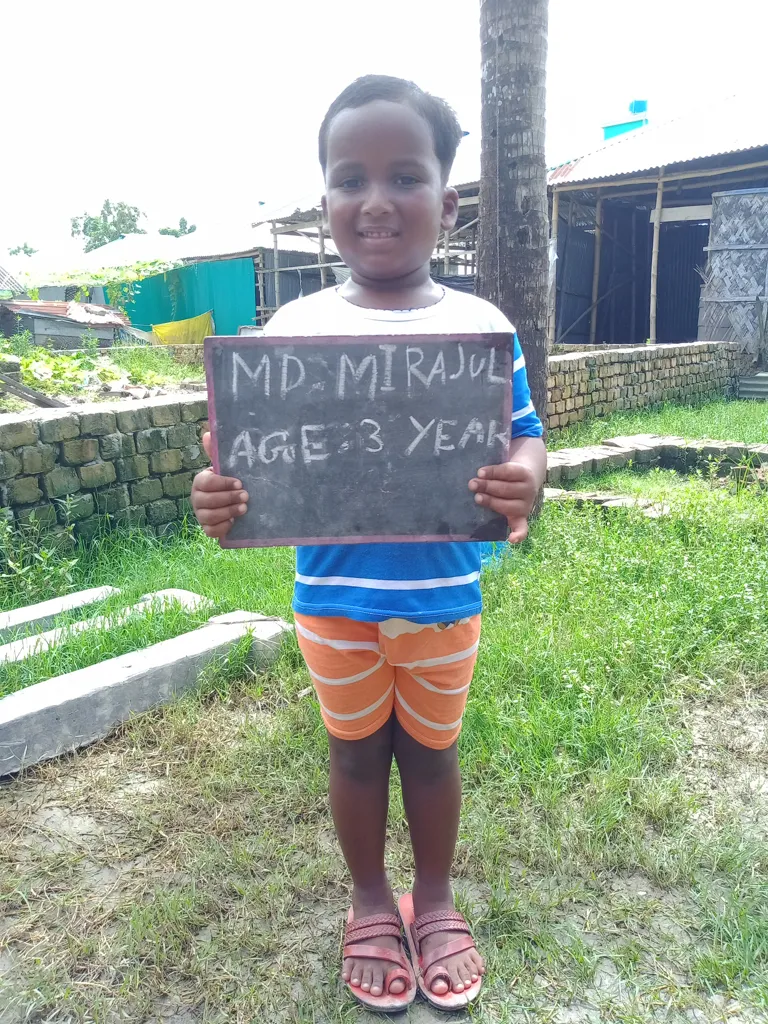 MD. MIRAJUL
AGE : 3 YEAR